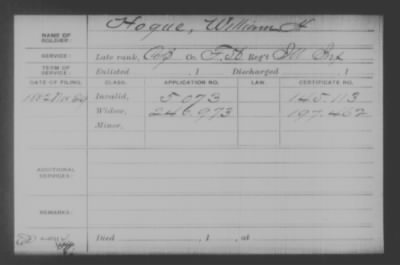 NAME OF SOLDIER: Hogue, William H
SERVICE: Late rank, Corp Co. Reg't Ill Inf
TERM OF SERVICE: Enlisted , 1 Discharged , 1
DATE OF FILING. CLASS. APPLICATION NO. LAW. CERTIFICATE NO.
Invalid, 5 073 145.113
Widow, 246.973 197.452
Minor,
ADDITIONAL SERVICES:
REMARKS:
Died , 1 , at